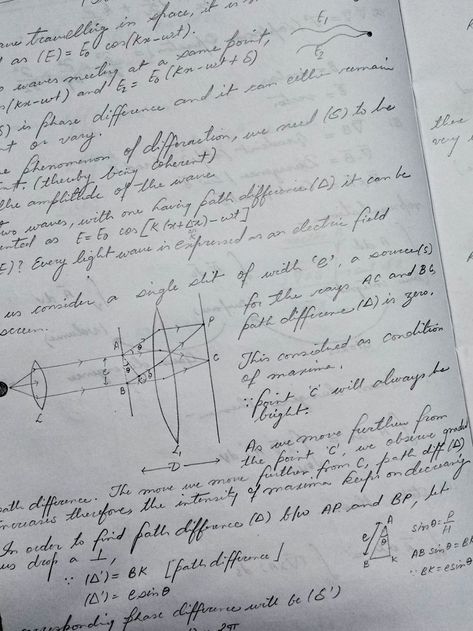 wave travelling in space, it is
d as (E) = E₀ cos(kx-wt).
o waves meeting at a same point,
os(kx-wt) and E₂ = E₀ (kx-wt + δ)
E₁
E₂
δ) is phase difference and it can either remain
nt or vary.
e phenomenon of diffraction, we need (δ) to be
nt. (thereby being coherent)
the amplitude of the wave
two waves, with one having path difference (Δ) it can be
ented as E = E₀ cos [K (x+Δx) - wt]
E)? Every light wave is expressed as an electric field
us consider a single slit of width 'e', a source(s)
screen.
for the rays AC and BC,
path difference (Δ) is zero.
This considered as condition
of maxima.
∵ point 'C' will always be
bright.
A
θ
P
e
C
B
θ
L
L₁
D
As we move further from
the point 'C', we observe
path difference. The move we move further from C, path diff (Δ)
increases therefores the intensity of maxima keeps on decreasing
In order to find path difference (Δ) b/w AP and BP, let
us drop a ⊥,
∵ (Δ') = BK [path difference]
(Δ') = e sinθ
A
e
θ
B
K
sinθ = P/H
AB sinθ = BK
∴ BK = e sinθ
corresponding phase difference with be (δ')
2π